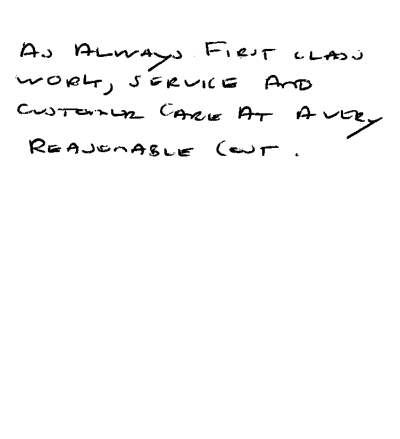 AS ALWAYS FIRST CLASS
WORK, SERVICE AND
CUSTOMER CARE AT A VERY
REASONABLE COST.